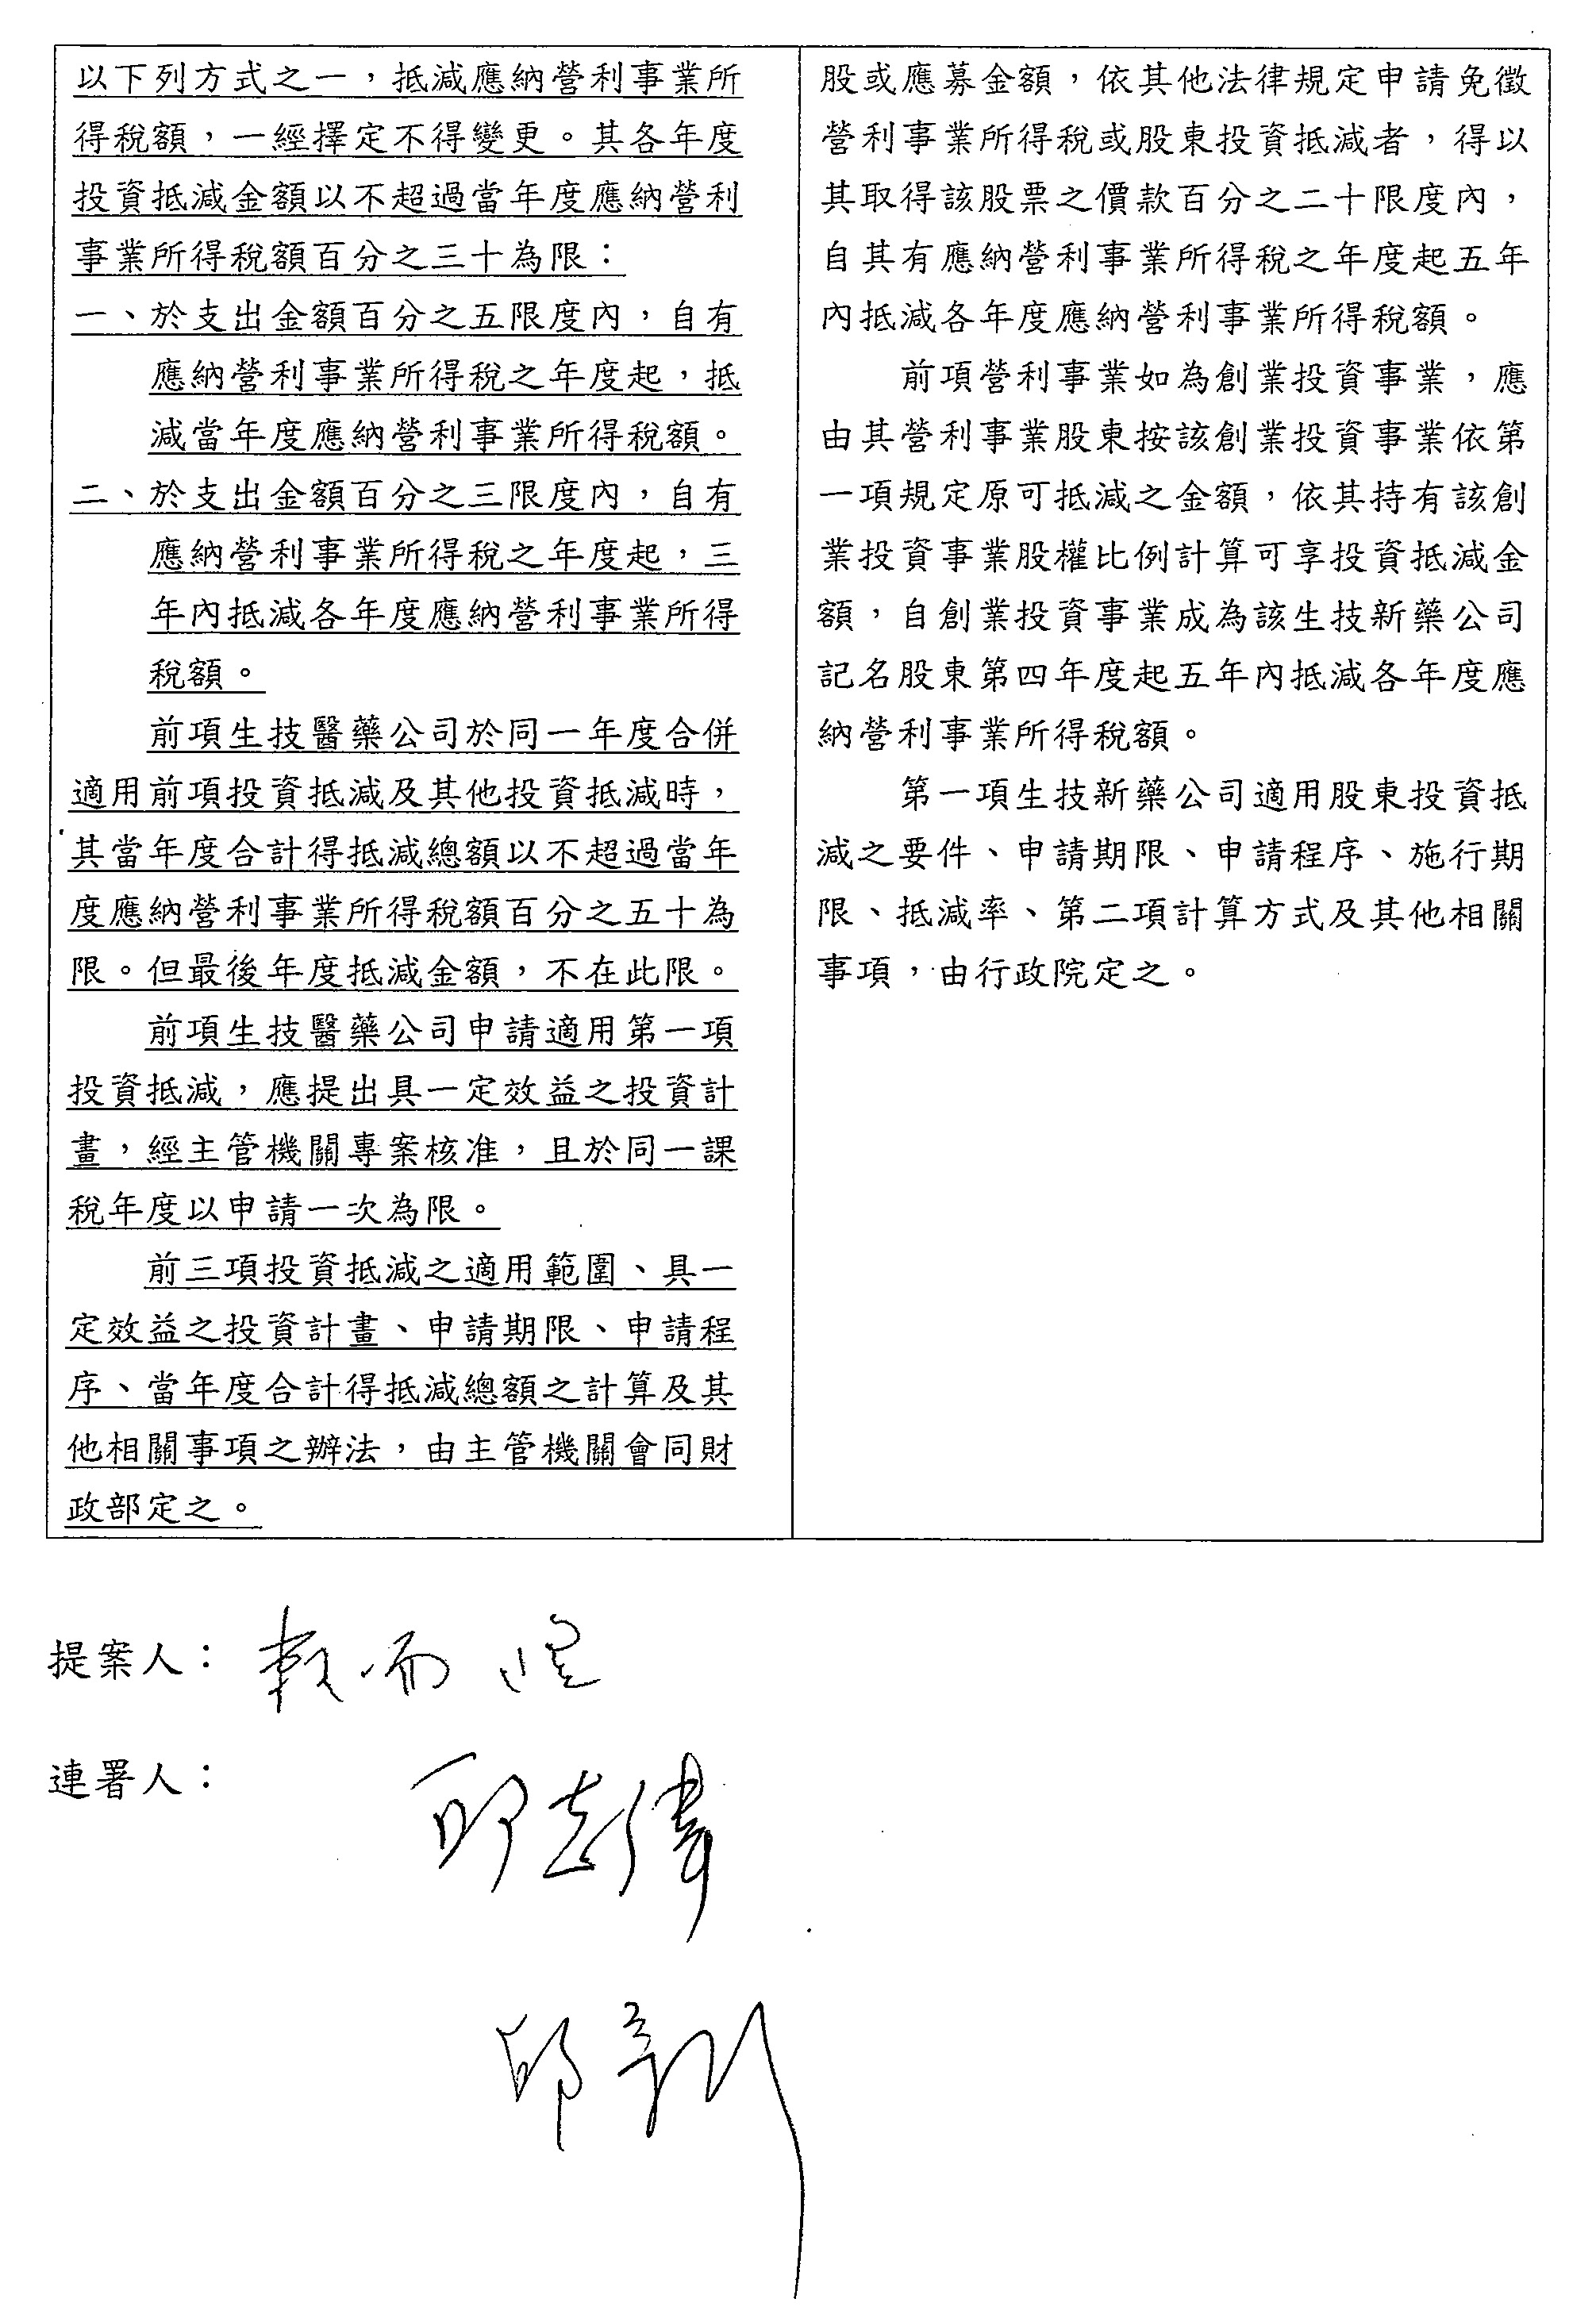 以下列方式之一，抵減應納營利事業所
得稅額，一經擇定不得變更。其各年度
投資抵減金額以不超過當年度應納營利
事業所得稅額百分之三十為限：
一、於支出金額百分之五限度內，自有
應納營利事業所得稅之年度起，抵
減當年度應納營利事業所得稅額。
二、於支出金額百分之三限度內，自有
應納營利事業所得稅之年度起，三
年內抵減各年度應納營利事業所得
稅額。
前項生技醫藥公司於同一年度合併
適用前項投資抵減及其他投資抵減時，
其當年度合計得抵減總額以不超過當年
度應納營利事業所得稅額百分之五十為
限。但最後年度抵減金額，不在此限。
前項生技醫藥公司申請適用第一項
投資抵減，應提出具一定效益之投資計
畫，經主管機關專案核准，且於同一課
稅年度以申請一次為限。
前三項投資抵減之適用範圍、具一
定效益之投資計畫、申請期限、申請程
序、當年度合計得抵減總額之計算及其
他相關事項之辦法，由主管機關會同財
政部定之。
股或應募金額，依其他法律規定申請免徵
營利事業所得稅或股東投資抵減者，得以
其取得該股票之價款百分之二十限度內，
自其有應納營利事業所得稅之年度起五年
內抵減各年度應納營利事業所得稅額。
前項營利事業如為創業投資事業，應
由其營利事業股東按該創業投資事業依第
一項規定原可抵減之金額，依其持有該創
業投資事業股權比例計算可享投資抵減金
額，自創業投資事業成為該生技新藥公司
記名股東第四年度起五年內抵減各年度應
納營利事業所得稅額。
第一項生技新藥公司適用股東投資抵
減之要件、申請期限、申請程序、施行期
限、抵減率、第二項計算方式及其他相關
事項，由行政院定之。
提案人：
連署人：